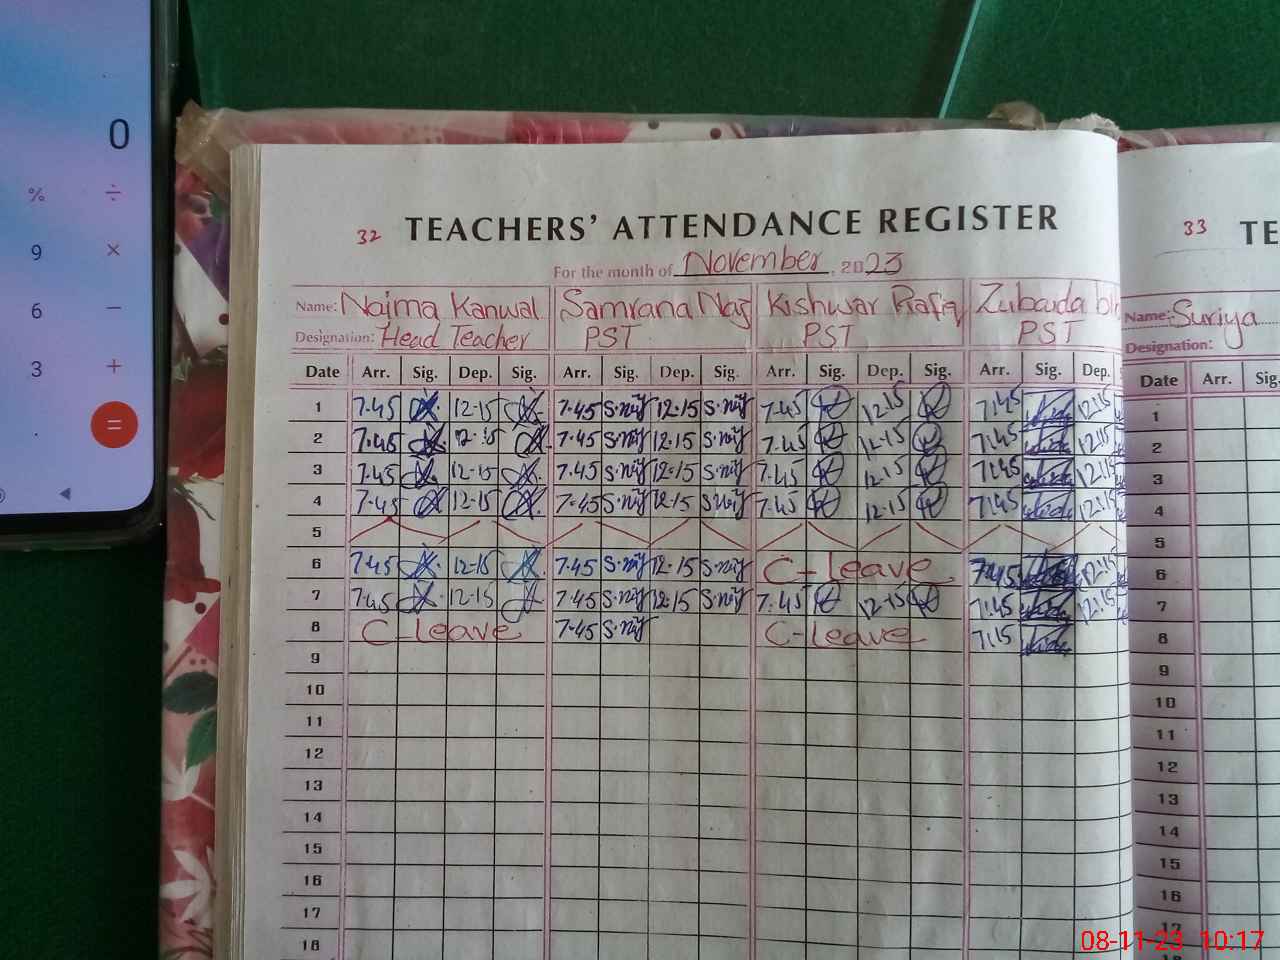 0
% ÷
9 ×
6 −
3 +
. =
32 TEACHERS' ATTENDANCE REGISTER
For the month of November, 2023
Name: Najma Kanwal Samrana Naz Kishwar Rafiq Zubaida
Designation: Head Teacher PST PST PST
Date Arr. Sig. Dep. Sig. Arr. Sig. Dep. Sig. Arr. Sig. Dep. Sig. Arr. Sig. Dep.
1 7.45 12.15 7.45 S.naz 12.15 S.naz 7.45 12.15 7:45 12:15
2 7.45 12.15 7.45 S.naz 12.15 S.naz 7.45 12.15 7:45 12:15
3 7.45 12.15 7.45 S.naz 12.15 S.naz 7.45 12.15 7:45 12:15
4 7.45 12.15 7.45 S.naz 12.15 S.naz 7.45 12.15 7:45 12:15
5
6 7.45 12.15 7.45 S.naz 12.15 S.naz C-leave 7:45 12:15
7 7.45 12.15 7.45 S.naz 12.15 S.naz 7.45 12.15 7:45 12:15
8 C-leave 7.45 S.naz C-leave 7:15
9
10
11
12
13
14
15
16
17
18
33 TE
Name: Suriya
Designation:
Date Arr. Sig.
1
2
3
4
5
6
7
8
9
10
11
12
13
14
15
16
17
08-11-23 10:17